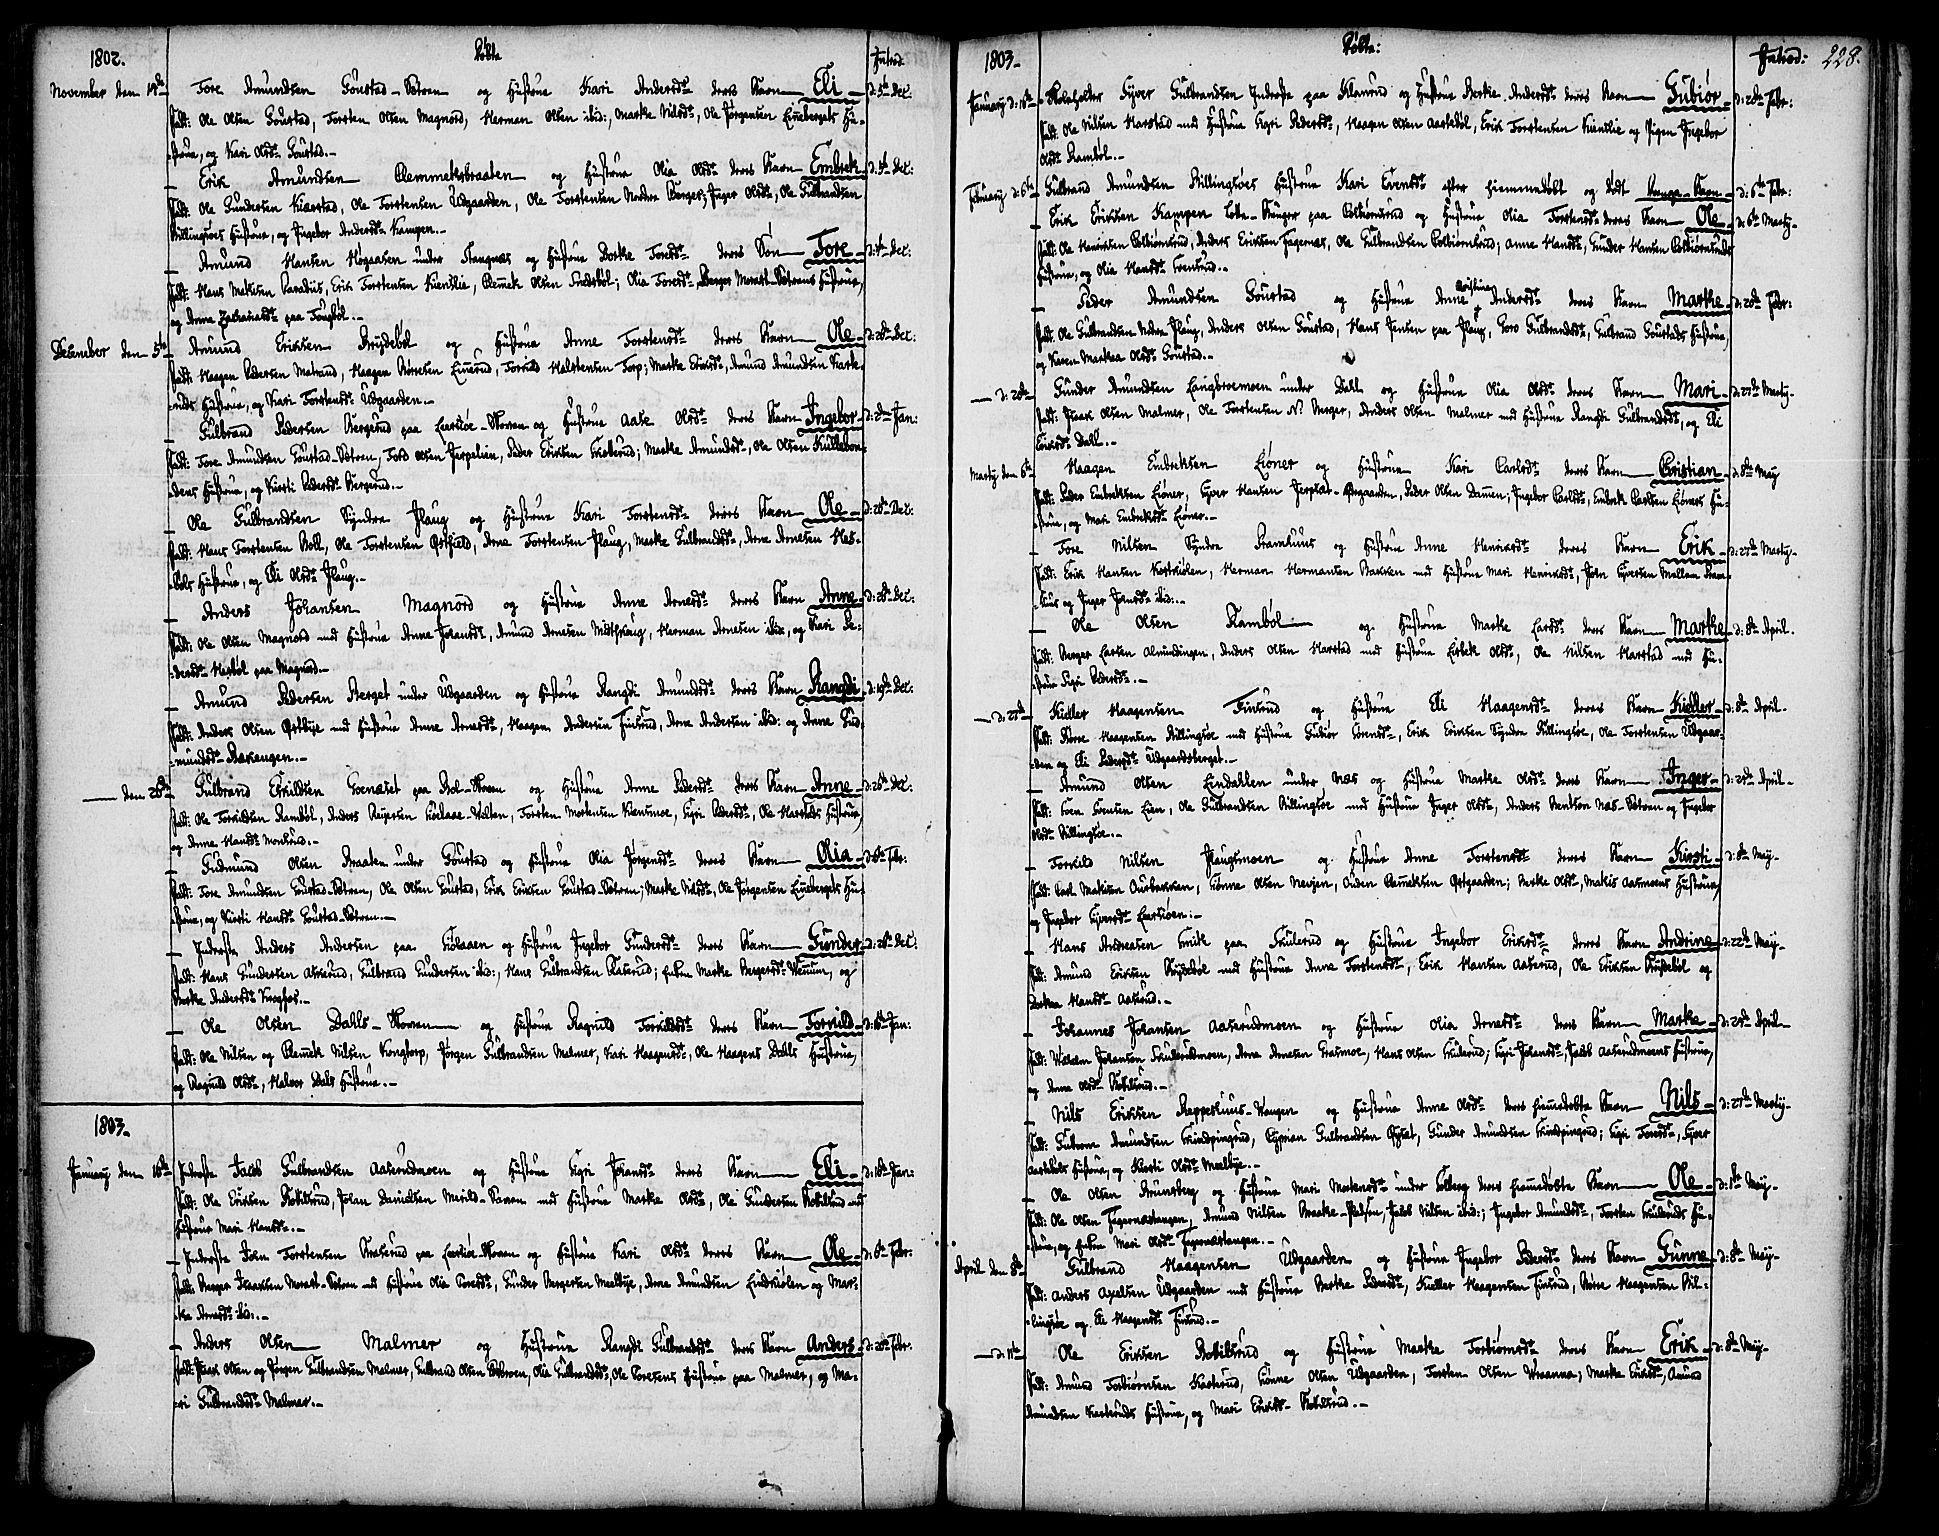 1802.
Døbte
Introd.
November den 14de
Tore Amundsen Goustad-Sætren og Hustrue Kari Andersdr deres Barn Eli d: 5te Dec:
Fadd: Ole Olsen Goustad, Torsten Olsen Magnord, Herman Olsen ibid:, Marke Nilsdr, Ole Jørgensen Linebergets Hu-
-strue, og Kari Olsdr Goustad.
Erik Amundsen Klemmetsbraaten og Hustrue Olia Olsdr deres Barn Embrek d: 5te Dec:
Fadd: Ole Gundersen Kiærstad, Ole Torstensen Udgaarden, Ole Torstensen Nordre Berger, Inger Olsdr, Ole Gulbrandsen
Billingsøes Hustrue, og Ingebor Andersdr Kampen.
Amund Hansen Høgaasen under Stangnæs og Hustrue Dorke Toresdr deres Søn Tore
Fadd: Hans Mathisen Paradiis, Erik Torstensen Kienslie, Olia Toresdr, Berger Morast-Sætrens Hustrue,
og Anne Zachariædr paa Tougbøl.
December den 5te
Amund Eriksen Brøjdebøl og Hustrue Anne Torstensdr deres Barn Ole d: 26de Dec:
Fadd: Haagen Pedersen Matrand, Haagen Linerud, Torkild Halstensen Torp; Marke Eriksdr, Amund Amundsen Kaste-
-ruds Hustrue, og Kari Torstensdr Udgaarden.
Gulbrand Pedersen Bergerud paa Leersiøe-Skoven og Hustrue Aase Olsdr deres Barn Ingebor Jan:
Fadd: Tore Amundsen Goustad-Sætren, Tord Olsen Jerpelien, Peder Eriksen Skulerud; Marke Amundsdr, Ole Olsen Kullebon-
-dens Hustrue, og Kirsti Pedersdr Bergerud.
Ole Gulbrandsen Syndre Plaug og Hustrue Kari Torstensdr deres Barn Ole d: 26de Dec:
Fadd: Hans Torstensen Boll, Ole Torstensen Østfield, Arne Torstensen Plaug, Marke Gulbrandsdr, Arne Arnesen Hes-
-bøls Hustrue, og Eli Olsdr Plaug.
Anders Johansen Magnord og Hustrue Anne Arnesdr deres Barn Anne d: 26de Dec:
Fadd: Ole Olsen Magnord med Hustrue Anne Johansdr, Amund Arnesen Midtskoug, Herman Arnesen ibid:, og Kari Pe-
-dersdr Hesbøl paa Magnord.
Amund Pedersen Berget under Udgaarden og Hustrue Rangdi Amundsdr deres Barn Rangdi d: 19de Dec:
Fadd: Anders Olsen Østbye med Hustrue Anne Arnesdr, Haagen Andersen Finsrud, Arne Andersen ibid: og Anne Gud-
-mundsdr Bakengen.
den 26de
Gulbrand Eskildsen Goenaset paa Bol-Skoven og Hustrue Anne Pedersdr deres Barn Anne d: 26de Dec:
Fadd: Ole Torkildsen Rambøl, Anders Torsten Mortensen Kiensmoe, Sigri Pedersdr, Ole Harstads Hustrue,
og Anne Hansdr Monsrud.
Gudmund Olsen Braaten under Goustad og Hustrue Olia Jørgensdr deres Barn Olia d: 6te Febr:
Fadd: Tore Amundsen Goustad-Sætren, Ole Olsen Goustad, Erik Eriksen Goustad-Sætren; Marke Nilsdr, Ole Jørgensen Linebergets Hu-
-strue, og Kirsti Hansdr Goustad-Sætren.
Inderste Anders Andersen paa og Hustrue Ingebor Gundersdr deres Barn Gunder d: 26de Dec:
Fadd: Hans Gundersen Aaserud, Gulbrand Gundersen ibid:, Hans Gulbrandsen Skaterud; Enken Marke Bergersdr, og
Dorke Andersdr Kongsfos.
Ole Olsen Dalls-Skoven og Hustrue Ragnild Torkildsdr deres Barn Torkild d: 16de Jan:
Fadd: Ole Nilsen og Klemmet Nilsen Kongstorp, Jørgen Gulbrandsen Malmer, Kari Haagensdr, Ole Haagens Dalls Hustrue,
og Ragnild Olsdr, Halvor Dals Hustrue.
1803.
January den 16de
Inderste Jacob Gulbrandsen Aaserudmoen og Hustrue Sigri Johansdr deres Barn Eli d: 16de Jan:
Fadd: Ole Eriksen Bobilsrud, Johan Danielsen med Hustrue Marke Olsdr, Ole Gundersen Bobilsrud med
Hustrue Mari Hansdr.
Inderste John Torstensen paa Leersiøe-Skoven og Hustrue Kari Olsdr deres Barn Ole d: 6te Febr:
Fadd: Berger Isaaksen Morast-Sætren med Hustrue Olia Toresdr, Gunder Bergersen Melbye, Arne Amundsen Lindkiølen og Mar-
-ke Arnesdr ibid:
Anders Olsen Malmer og Hustrue Rangdi Gulbrandsdr deres Barn Anders d: 20de Febr:
Fadd: Isaak Olsen og Jørgen Gulbrandsen Malmer, Gulbrand Olsen Sætren, Olia Gulbrandsdr, Ole Toresens Hustrue paa Malmer, og Ma-
-ri Gulbrandsdr Malmer.
1803.
Døbte:
Introd:
228.
January d: 16de
Syver Gulbrandsen Inderste paa og Hustrue Berte Andersdr deres Barn Gubiør d: 20de Febr:
Fadd: Ole Nilsen Harstad med Hustrue Sigri Pedersdr, Haagen Olsen Aastebøl, Erik Torstensen Kienslie og Pigen Ingebor
Olsdr Rambøl.
February d: 6te
Gulbrand Amundsen Billingsøes Hustrue Kari Evensdr efter hiemmedøbt og dødt Barn d: 6te Febr:
Erik Eriksen Kampen paa Bolbiørnsrud og Hustrue Olia Torstensdr deres Barn Ole d: 6te Martij
Fadd: Ole Henriksen Bolbiørnsrud, Anders Eriksen Fagernæs, Ole Gulbrandsen Bolbiørnsrud; Anne Hansdr, Gunder Hansen Bolbiørnsruds
Hustrue, og Olia Hansdr
Peder Amundsen Goustad og Hustrue Anne Christine Andersdr deres Barn Marthe d: 20de Febr:
Fadd: Ole Gulbrandsen Nedre Plaug, Anders Olsen Goustad, Hans Jensen paa Plaug, Goro Gulbrandsdr, Gulbrand Goustads Hustrue,
og Karen Marthea Olsdr Goustad.
d: 20de
Gunder Amundsen Langbroemoen under Dall og Hustrue Olia Olsdr deres Barn Mari d: 27de Martij
Fadd: Isaak Olsen Malmer, Ole Torstensen N. Berger, Anders Olsen Malmer med Hustrue Rangdi Gulbrandsdr, og Eli
Eriksdr Dall.
Martij den 6te
Haagen Embreksen Liøner og Hustrue Kari Carlsdr deres Barn Christian d: 8de May
Fadd: Peder Embreksen Liøner, Syver Hansen Jerpset-Øvregaarden, Peder Olsen Dammen; Ingebor Carlsdr, Embrek Carlsen Liøners Hu-
-strue, og Mari Embreksdr Liøner.
Tore Nilsen Syndre Skramhuus og Hustrue Anne Henriksdr deres Barn Erik d: 27de Martij
Fadd: Erik Hansen, Herman Hermansen Bakken med Hustrue Mari Henriksdr, John Syversen Mellem Skram-
-huus og Inger Jensdr ibid:
Ole Olsen Rambøl og Hustrue Marthe Larsdr deres Barn Marthe d: 8de April.
Fadd: Berger Larsen Almindingen, Anders Olsen Harstad med Hustrue Lisbek Olsdr, Ole Nilsen Harstad med Hu-
-strue Sigri Pedersdr.
d: 27de
Kieller Haagensen Finsrud og Hustrue Eli Haagensdr deres Barn Kieller d: 8de April.
Fadd: Børre Haagensen Billingsøe med Hustrue Gubiør, Erik Eriksen Syndre Billingsøe, Ole Torstensen Udgaar-
-den og Eli Pedersdr Udgaardsberget.
Amund Olsen Lindahlen under Næs og Hustrue Marthe Olsdr deres Barn Inger d: 24de April
Fadd: Sven Svensen Lien, Ole Gulbrandsen Billingsøe med Hustrue Inger Olsdr, Anders Bentson Næs-Sætren og Ingebor
Olsdr Billingsøe.
Torkild Nilsen Plaugsmoen og Hustrue Anne Torstensdr deres Barn Kirsti d: 8de May
Fadd: Carl Mathisen Aurbakken, Gunne Olsen Nesjen, Auden Klemetsen Østgaarden; Berte Olsdr, Mathis Aasmoens Hustrue,
og Ingebor Syversdr Leersiøen.
Hans Andreasen Smik paa Skulerud og Hustrue Ingebor Eriksdr deres Barn Andrine d: 22de May
Fadd: Amund Eriksen Brøjdebøl med Hustrue Anne Torstensdr, Erik Hansen Aaserud, Ole Eriksen Brøjdebøl og
Dorthea Hansdr Aaserud.
Johannes Johansen Aaserudmoen og Hustrue Olia Arnesdr deres Barn Marthe d: 24de April
Fadd: Wilhelm Johansen Skulerudmoen, Arne Arnesen Grasmoe, Hans Olsen Skulerud; Sigri Johansdr, Jacob Aaserudmoens Hustrue,
og Anne Olsdr Bobilsrud.
Nils Eriksen Rappeshuus-Vangen og Hustrue Anne Olsdr deres hiemmedøbte Barn Nils d: 27de Martij
Fadd: Guttorm Amundsen Skindpingrud, Syvrian Gulbrandsen, Gunder Amundsen Skindpingrud; Sigri Toresdr, Syver
Aastebøls Hustrue, og Kirsti Olsdr Melbye.
Ole Olsen Brunsberg og Hustrue Mari Mortensdr under Solberg deres hiemmedøbte Barn Ole d: 1ste May
Fadd: Ole Olsen Fagernæstangen, Amund Nilsen Braate-Pladsen, Jacob Nilsen ibid:; Ingebor Amundsdr, Torsten Skuleruds Hu-
-strue, og Enken Mari Olsdr Fagernæstangen.
April den 8de
Gulbrand Haagensen Udgaarden og Hustrue Ingebor Pedersdr deres Barn Gunne d: 8de May
Fadd: Anders Axelsen Udgaarden med Hustrue Berthe Pedersdr, Kieller Haagensen Finsrud, Børre Haagensen Bil-
-lingsøe og Eli Haagensdr Finsrud.
d: 11te
Ole Eriksen Bobilsrud og Hustrue Marthe Torbiørnsdr deres Barn Erik d: 8de May
Fadd: Amund Torbiørnsen Kasterud, Gunne Olsen Udgaarden, Torsten Olsen; Marthe Eriksdr, Amund
Amundsen Kasteruds Hustrue, og Mari Eriksdr Bobilsrud.